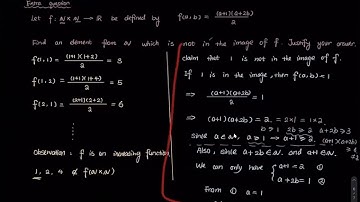 Extra question
Let f: N×N → R be defined by f(a,b) = (a+1)(a+2b)/2
Find an element from N which is not in the image of f. Justify your answer.
f(1,1) = (1+1)(1+2)/2 = 3
f(1,2) = (1+1)(1+4)/2 = 5
f(2,1) = (2+1)(2+2)/2 = 6
Observation: f is an increasing function
1, 2, 4 ∉ f(N×N)
claim that 1 is not in the image of f.
If 1 is in the image, then f(a,b) = 1
⇒ (a+1)(a+2b)/2 = 1
⇒ (a+1)(a+2b) = 2. = 2×1 = 1×2.
b≥1 2b≥2 a+2b≥3
since a∈N, a≥1 ⇒ a+1≥2.
(a+1)(a+2b)
Also, since a+2b∈N and a+1∈N,
We can only have { a+1=2 ①
a+2b=1 ②
from ① a=1